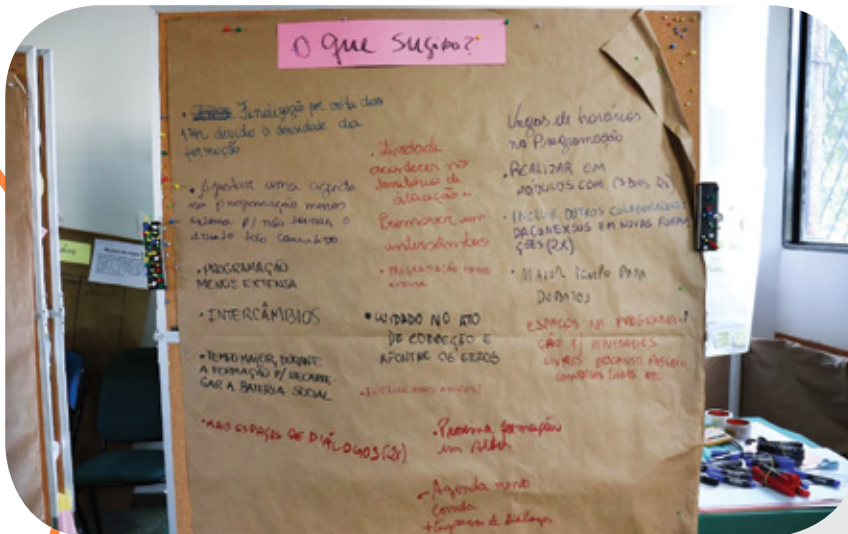 O que sugiro?
• Finalização por volta das
17h devido à densidade da
formação
• Ajustar uma agenda
na programação menos
extensa p/ não tornar o
tão cansativo.
• PROGRAMAÇÃO
MENOS EXTENSA
• INTERCÂMBIOS
• TEMPO MAIOR, DURANTE
A FORMAÇÃO P/ RECARRE-
GAR A BATERIA SOCIAL
• MAIS ESPAÇOS DE DIÁLOGOS (2x)
acontecer no
território de
atuação e
Promover um
intercâmbio
• PROGRAMAÇÃO menos
extensa
• CUIDADO NO ATO
DE CORREÇÃO E
APONTAR OS ERROS
• INCLUIR
• Próxima formação
em
- Agenda menos
corrida
+ espaços de diálogos
Vagas de horários
na Programação
• REALIZAR EM
MÓDULOS COM (3 DIAS
• INCLUIR OUTROS COLABORADORES
DA CONEXSUS EM NOVAS FORMA-
ÇÕES (2X)
• MAIOR TEMPO PARA
DEBATES
ESPAÇOS NA PROGRAMA-
ÇÃO P/ ATIVIDADES
LIVRES
CONVERSAS LIVRES, ETC